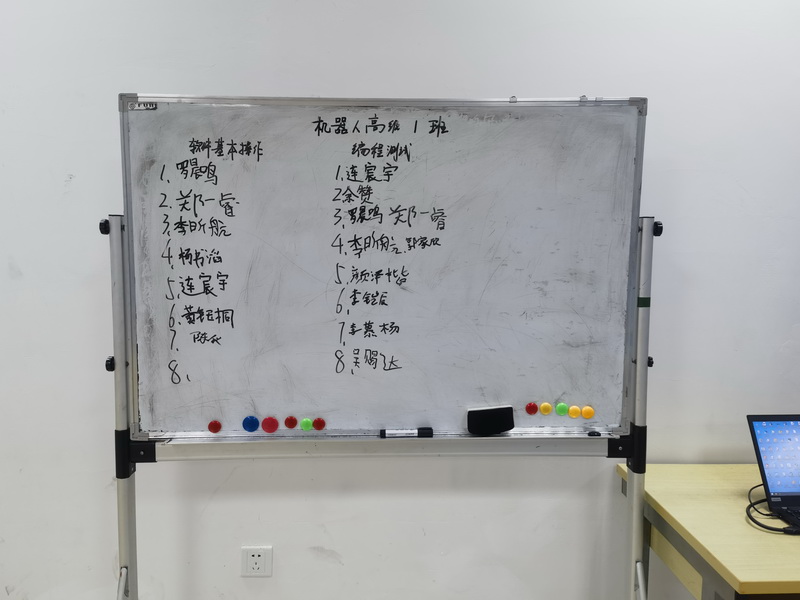 机器人高级1班
软件基本操作
1.罗晨鸣
2.郑一睿
3.李昕航
4.杨书滔
5.连宸宇
6.黄钰桐
7.陈
8.
编程测试
1.连宸宇
2.余赞
3.罗晨鸣 郑一睿
4.李昕航
5.颜泽楷
6.李铠辰
7.李慕杨
8.吴赐达